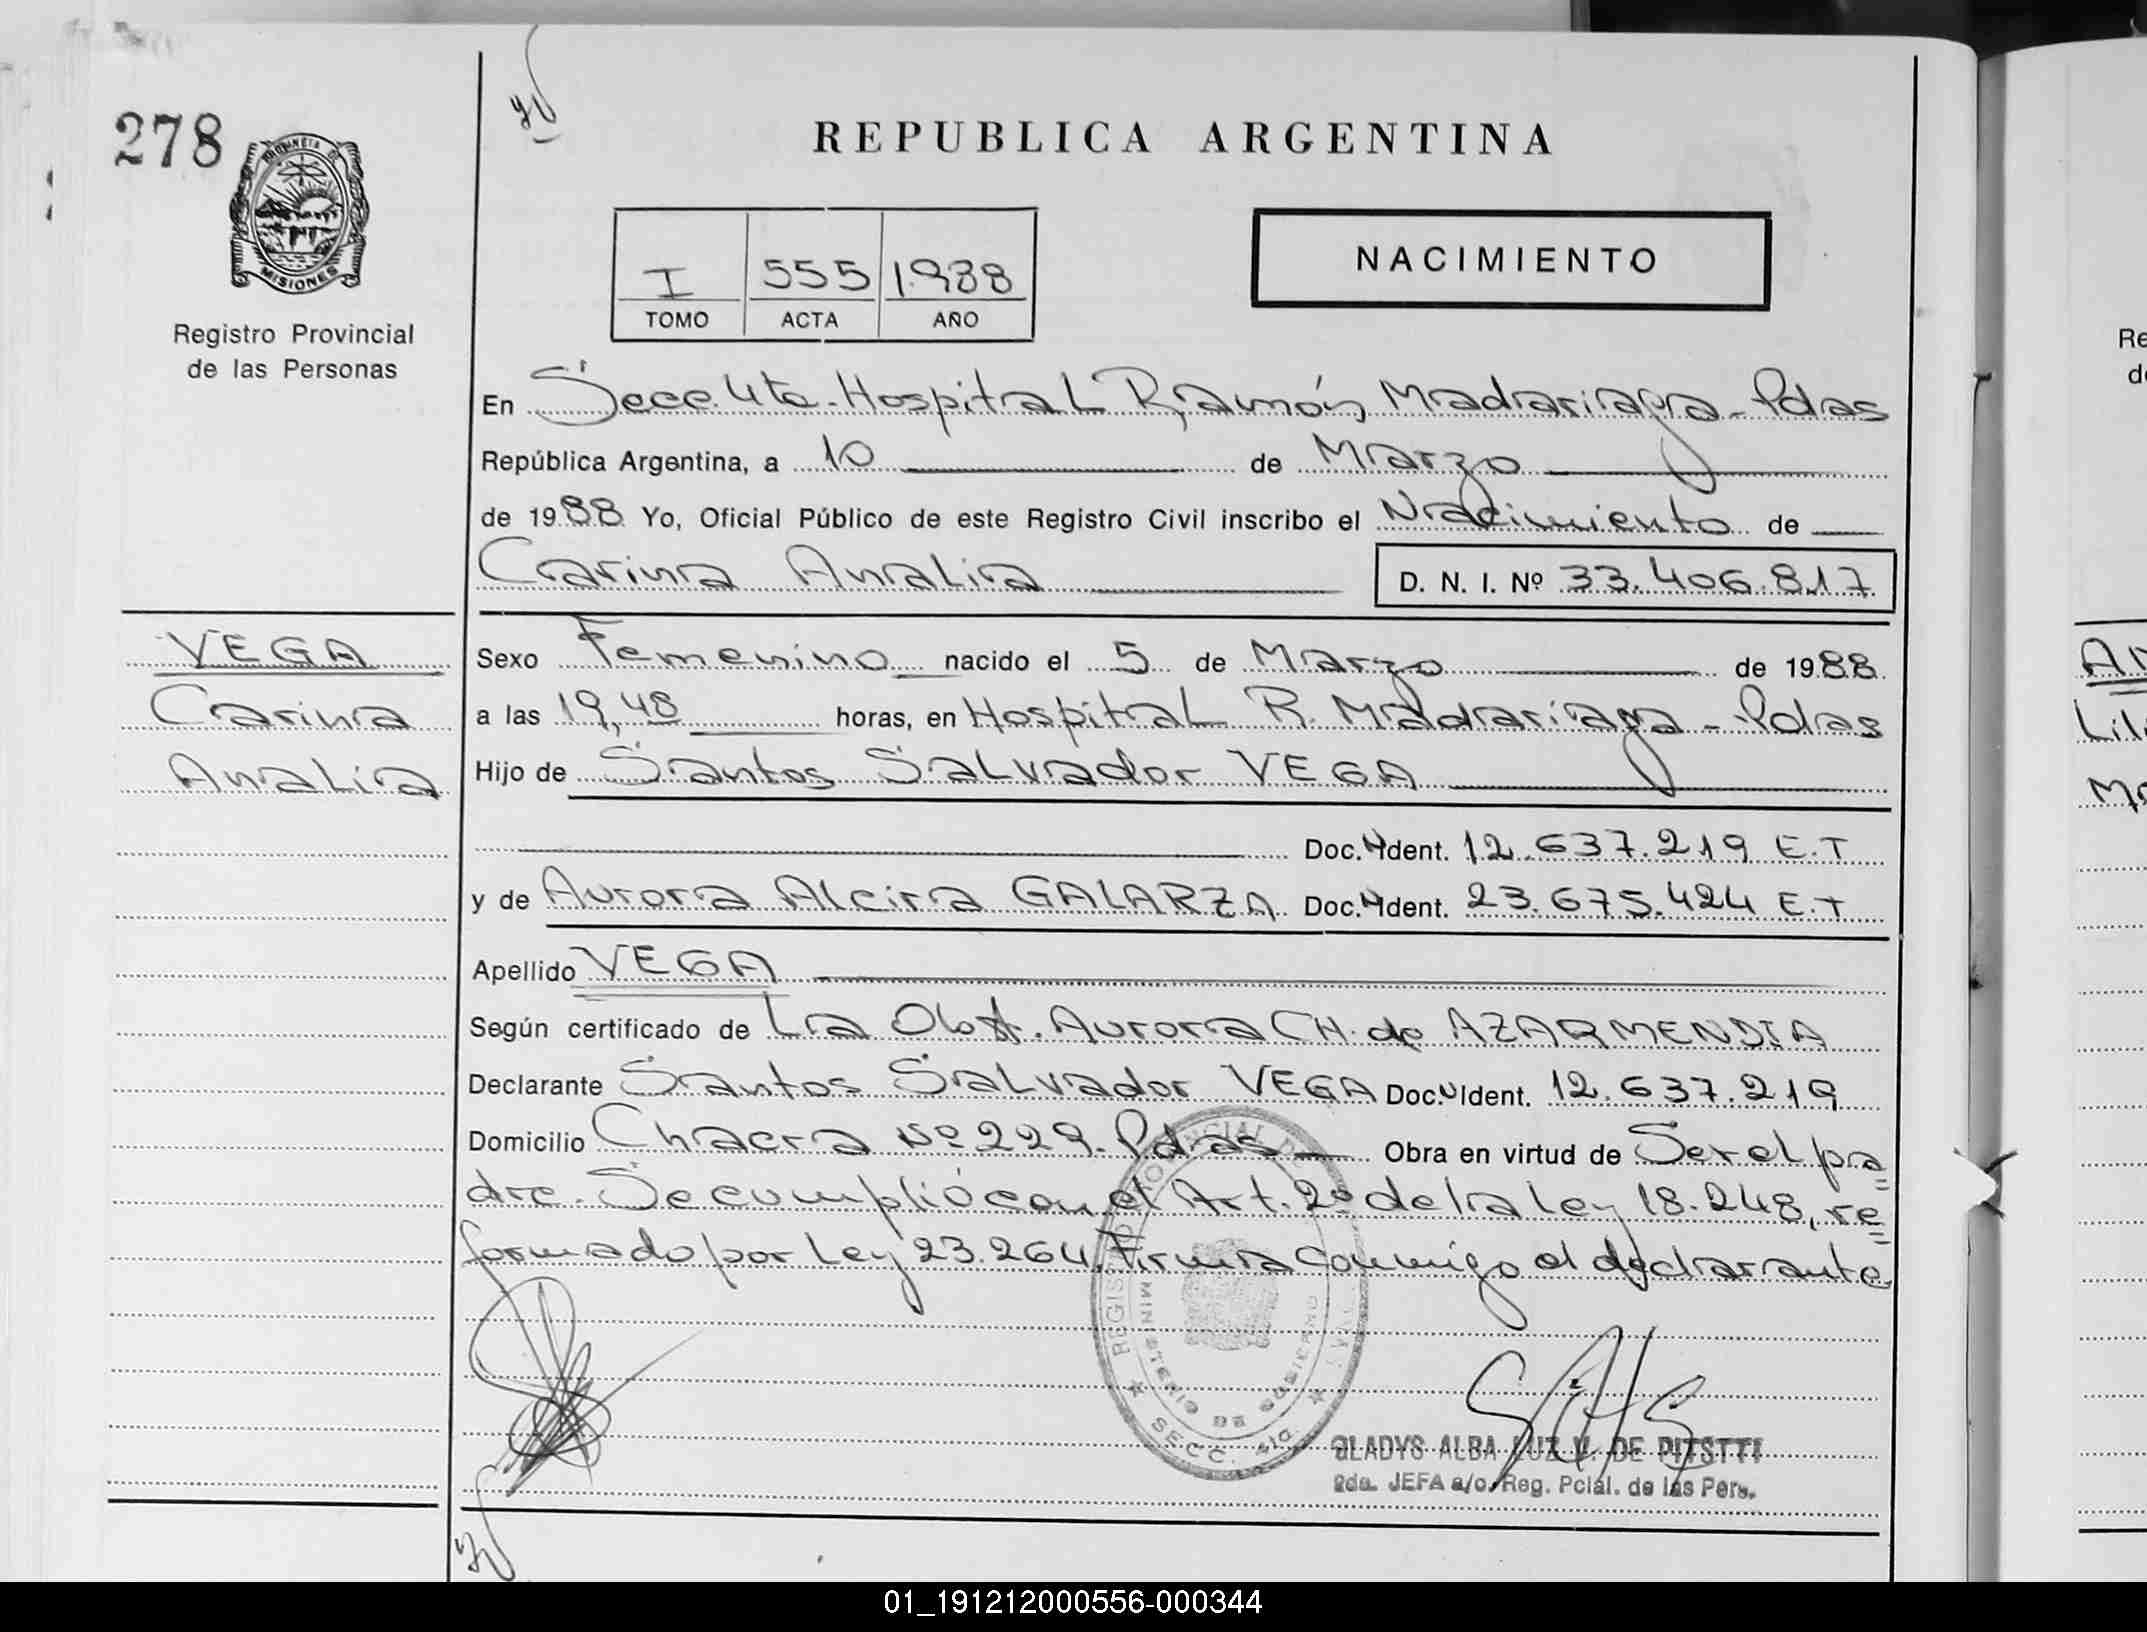 278
PROVINCIA DE
MISIONES
Registro Provincial
de las Personas
REPUBLICA ARGENTINA
NACIMIENTO
I 555 1.988
TOMO ACTA AÑO
En Secc. 4ta. Hospital Ramón Madariaga - Pdas
República Argentina, a 10 de Marzo
de 1988 Yo, Oficial Público de este Registro Civil inscribo el Nacimiento de
Carina Analia D. N. I. Nº 33.406.817
VEGA
Carina
Analia
Sexo Femenino nacido el 5 de Marzo de 1988
a las 19,48 horas, en Hospital R. Madariaga - Pdas
Hijo de Santos Salvador VEGA
Doc. Ident. 12.637.219 E.T
y de Aurora Alcira GALARZA Doc. Ident. 23.675.424 E.T
Apellido VEGA
Según certificado de La Obst. Aurora CH. de AZARMENDIA
Declarante Santos Salvador VEGA Doc. Ident. 12.637.219
Domicilio Chacra Nº 229. Pdas Obra en virtud de Ser el pa
dre. Se cumplió con el Art. 2º de la Ley 18.248, re
formado por Ley 23.264. Firma conmigo el declarante.
REGISTRO PROVINCIAL DE LAS
MINISTERIO DE GOBIERNO
SECC. 4ta.
GLADYS ALBA LUZ V. DE
2da. JEFA a/c. Reg. Pcial. de las Pers.
Re
de
AN
Lili
Ma
01_191212000556-000344